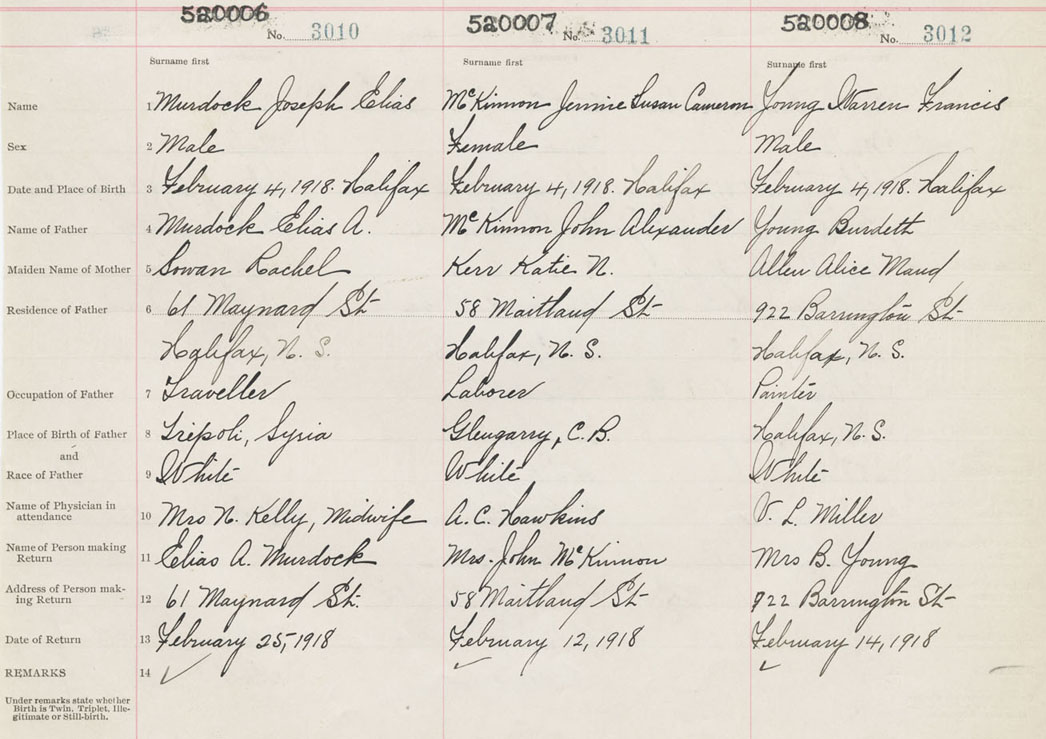 520006 520007 520008
No. 3010 No. 3011 No. 3012
Surname first Surname first Surname first
Name 1 Murdock Joseph Elias McKinnon Jennie Susan Cameron Young Warren Francis
Sex 2 Male Female Male
Date and Place of Birth 3 February 4, 1918. Halifax February 4, 1918. Halifax February 4, 1918. Halifax
Name of Father 4 Murdock Elias A. McKinnon John Alexander Young Burdett
Maiden Name of Mother 5 Sowan Rachel Kerr Katie N. Allen Alice Maud
Residence of Father 6 61 Maynard St 58 Maitland St 922 Barrington St
Halifax, N. S. Halifax, N. S. Halifax, N. S.
Occupation of Father 7 Traveller Laborer Painter
Place of Birth of Father 8 Tripoli, Syria Glengarry, C. B. Halifax, N. S.
and
Race of Father 9 White White White
Name of Physician in
attendance 10 Mrs N. Kelly, Midwife A. C. Hawkins V. L. Miller
Name of Person making
Return 11 Elias A. Murdock Mrs. John McKinnon Mrs B. Young
Address of Person mak-
ing Return 12 61 Maynard St. 58 Maitland St 922 Barrington St
Date of Return 13 February 25, 1918 February 12, 1918 February 14, 1918
REMARKS 14
Under remarks state whether
Birth is Twin, Triplet, Ille-
gitimate or Still-birth.